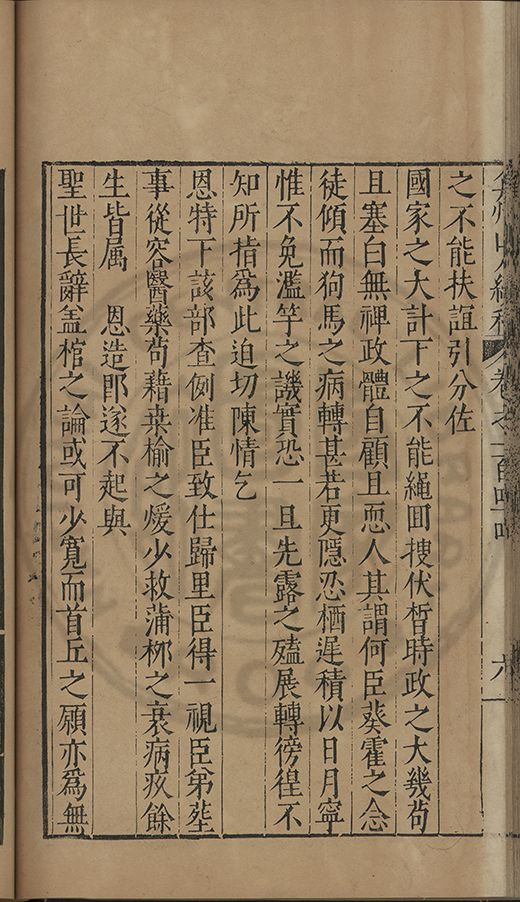 弇州山人續稿 卷之一百四 六
之不能扶誼引分佐
國家之大計下之不能繩囬搜伏晳時政之大幾茍
且塞白無裨政體自顧且恧人其謂何臣葵霍之念
徒傾而狗馬之病轉甚若更隱忍栖遲積以日月寧
惟不免濫竽之譏實恐一旦先露之殣展轉徬徨不
知所措爲此迫切陳情乞
恩特下該部查例准臣致仕歸里臣得一視臣弟塟
事從容醫藥茍藉桒榆之煖少救蒲桞之衰病疚餘
生皆属 恩造卽遂不起與
聖世長辭盖棺之論或可少寬而首丘之願亦爲無